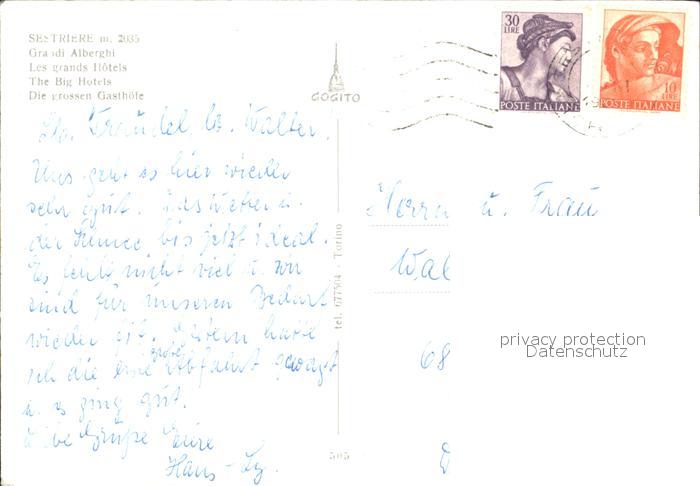 SESTRIERE m. 2035
Grandi Alberghi
Les grands Hôtels
The Big Hotels
Die grossen Gasthöfe
GOGITO
30
LIRE
POSTE ITALIANE
10
LIRE
POSTE ITALIANE
Lb. Traudel lb. Walter.
Uns geht es hier wieder
sehr gut. Das Wetter u.
der Schnee bis jetzt ideal.
Es fehlt nicht viel u. wir
sind für unseren Bedarf
wieder fit. Gestern hatte
ich die eine große Abfahrt gewagt
u. es ging gut.
Liebe Grüße Eure
Hans -
tel. 677504 - Torino
505
Herrn u. Frau
Wal
68
D
privacy protection
Datenschutz